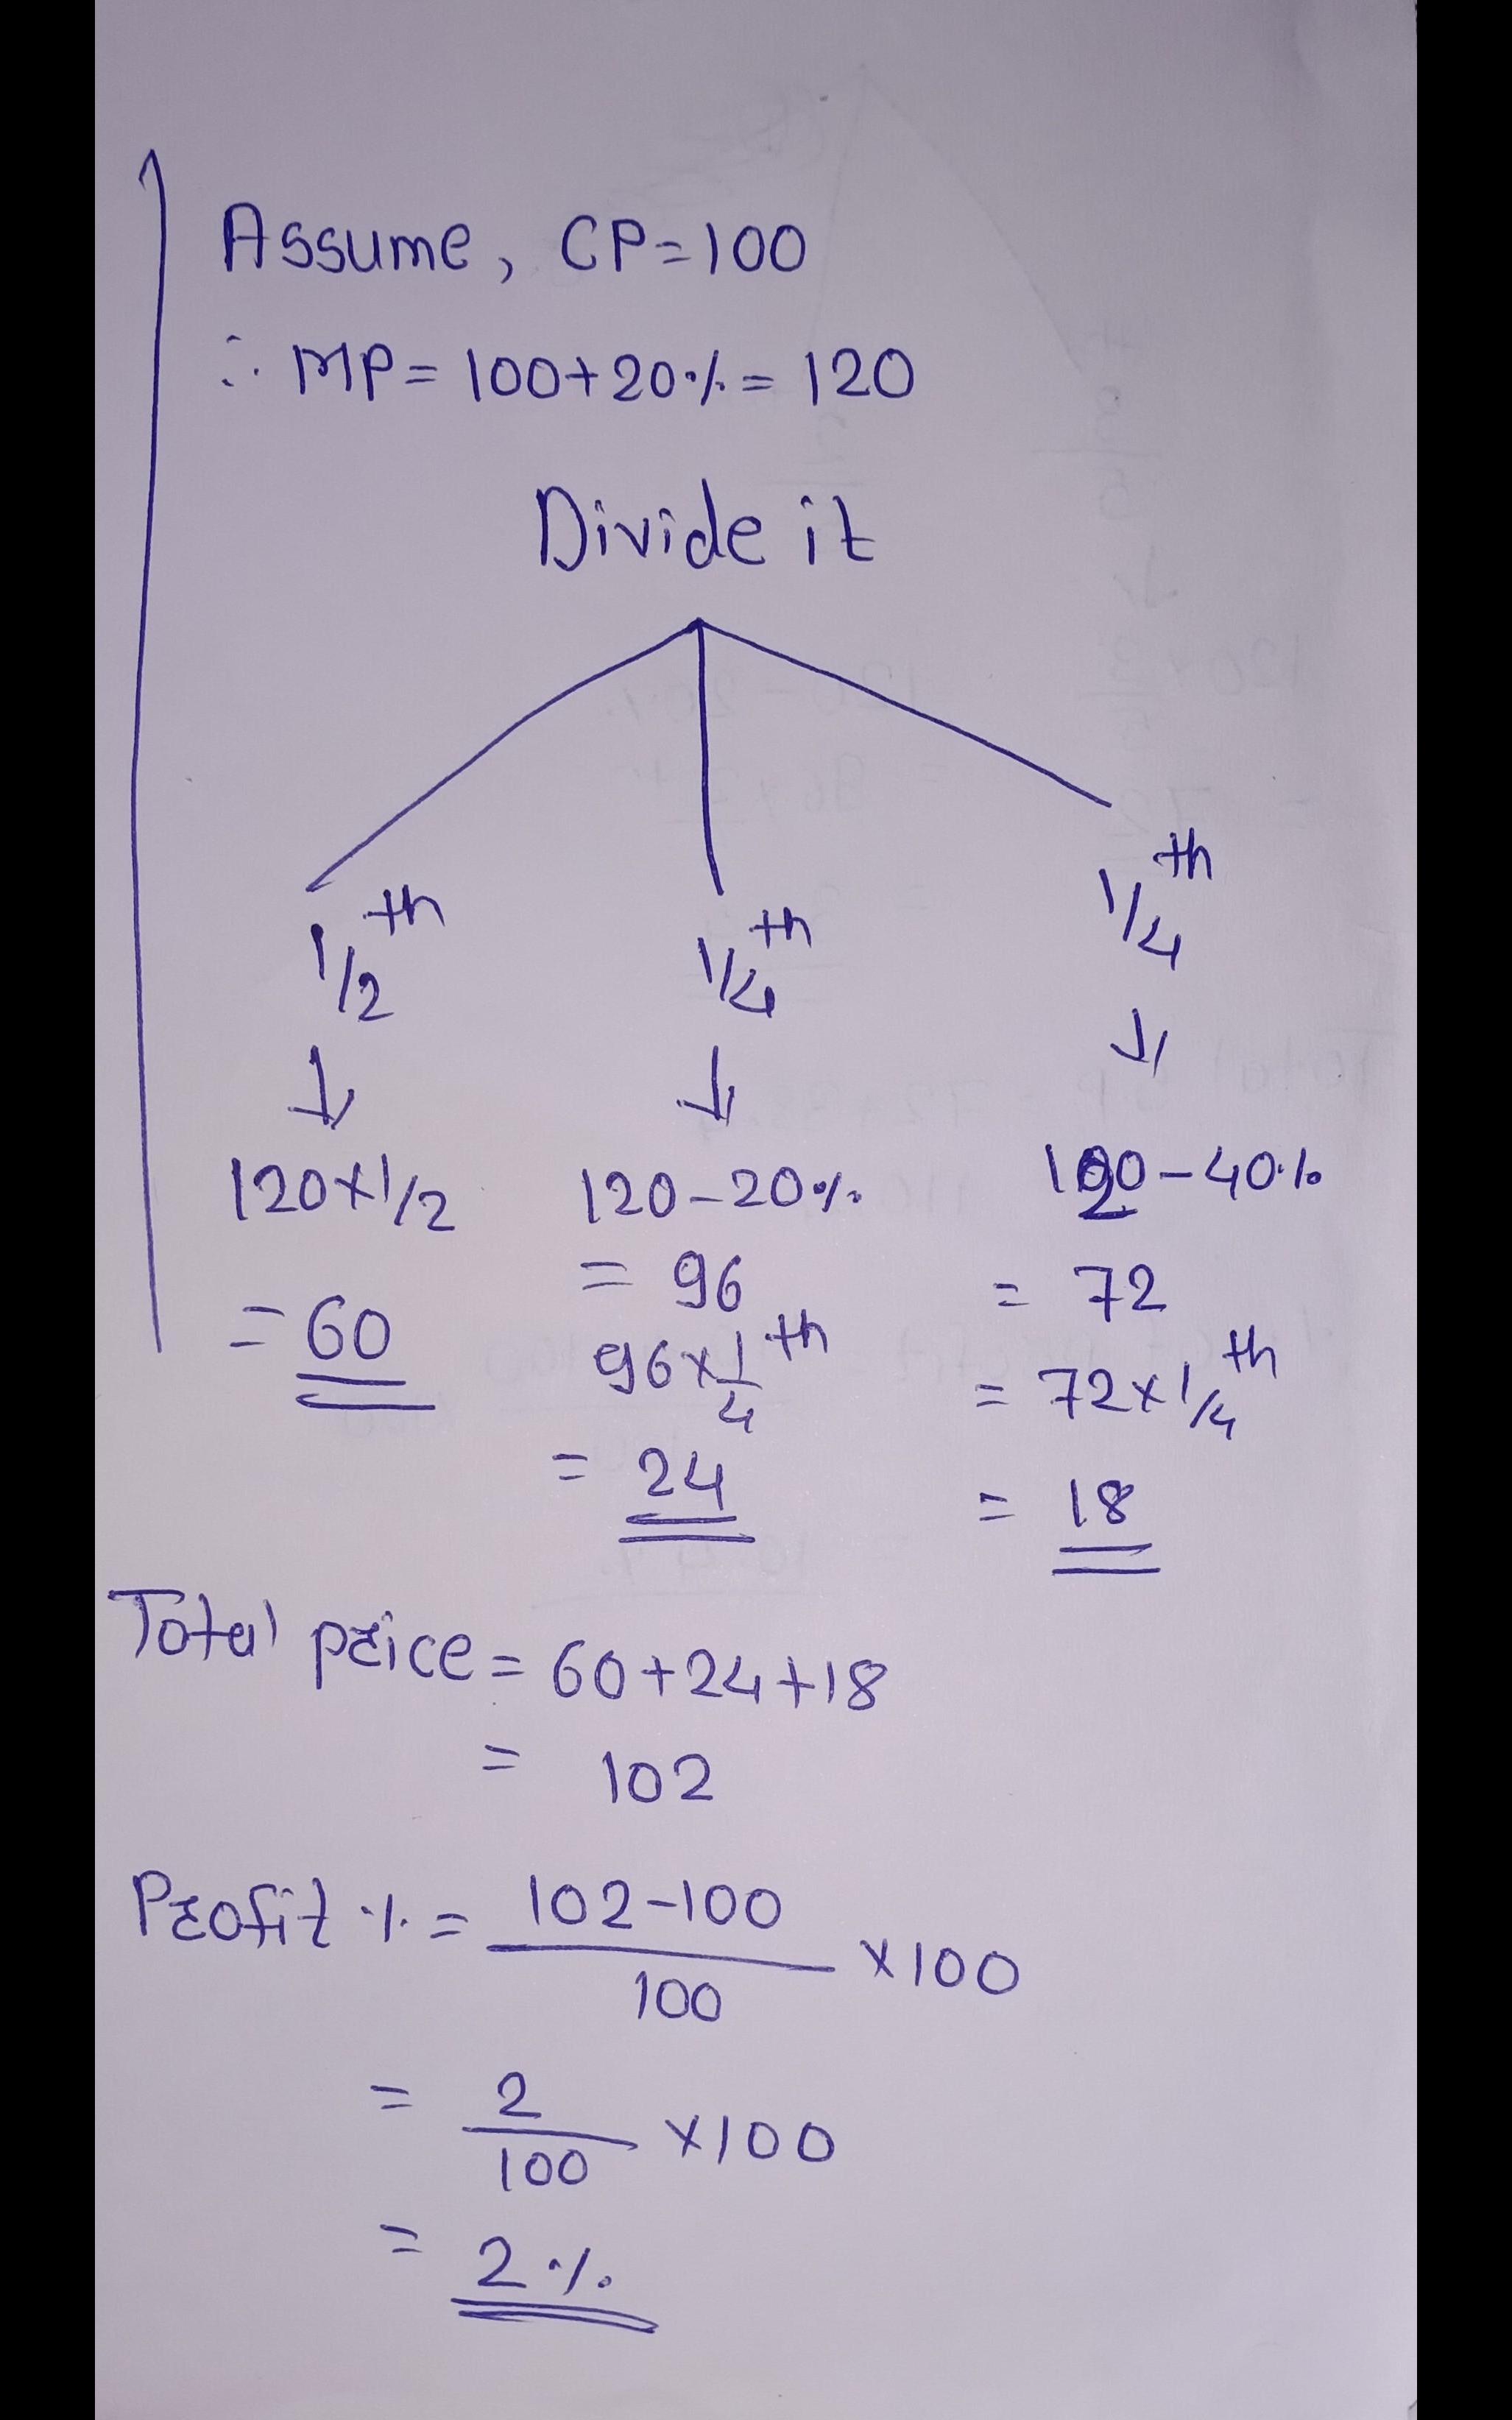 Assume, CP=100
∴ MP= 100+20%= 120
Divide it
1/2 th
1/4 th
1/4 th
↓
↓
↓
120×1/2
= 60
120-20%
= 96
96×1/4 th
= 24
120-40%
= 72
= 72×1/4 th
= 18
Total price = 60+24+18
= 102
Profit % = 102-100/100 ×100
= 2/100 ×100
= 2%